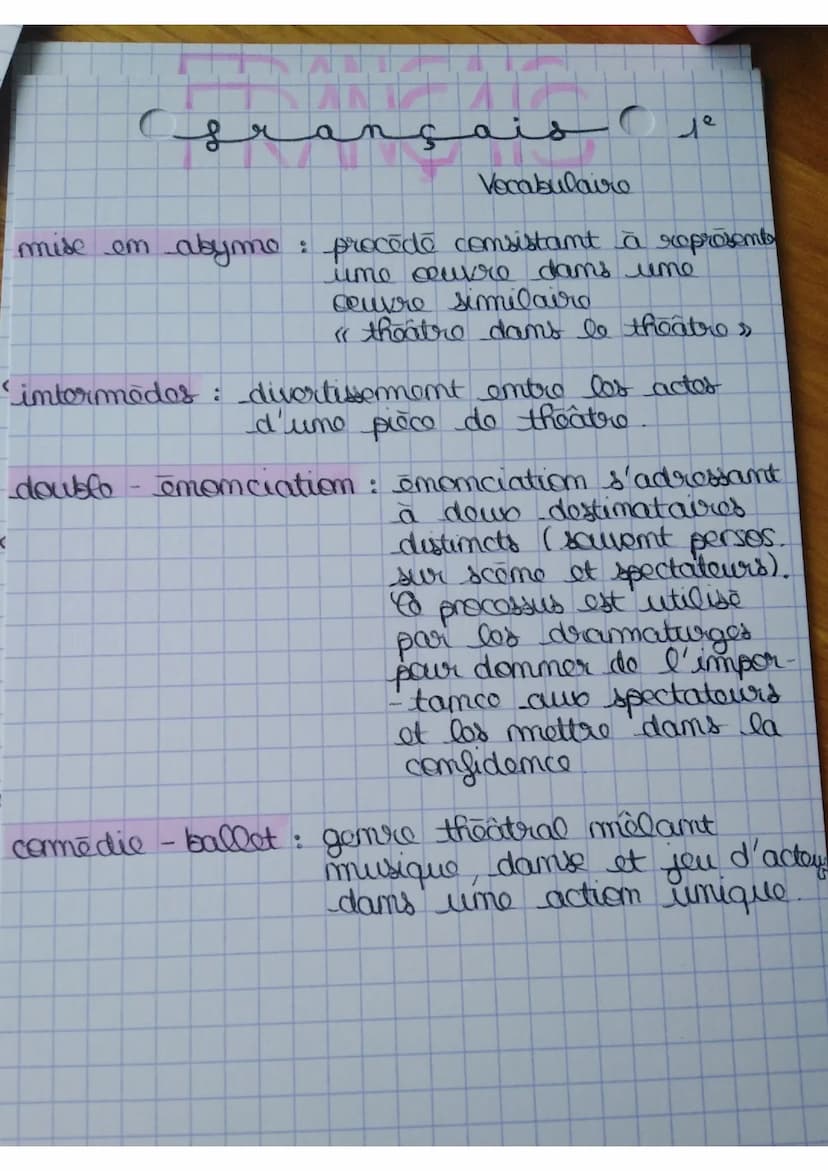 FRANÇAIS
français 1e
Vocabulaire
mise en abyme : procédé consistant à représenter
une œuvre dans une
œuvre similaire
« théâtre dans le théâtre »
intermèdes : divertissement entre les actes
d'une pièce de théâtre.
double - énonciation : énonciation s'adressant
à deux destinataires
distincts (souvent persos.
sur scène et spectateurs).
Ce processus est utilisé
par les dramaturges
pour donner de l'impor-
-tance aux spectateurs
et les mettre dans la
confidence
comédie - ballet : genre théâtral mêlant
musique, danse et jeu d'acteurs
dans une action unique.